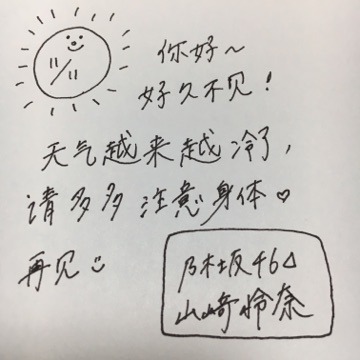 你好~
好久不见!
天气越来越冷了,
请多多注意身体♡
再见
乃木坂46△
山崎怜奈